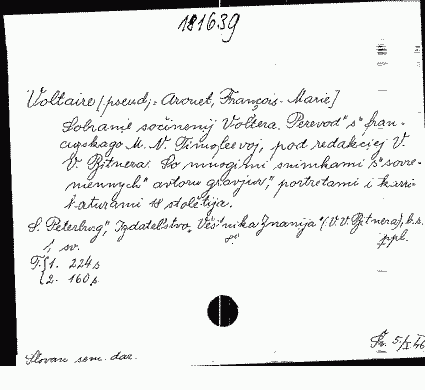 181639
Voltaire [pseud; = Arouet, François-Marie]
Sobranie sočinenij Voltera. Perevod" s" fran-
cuzskago M. N. Timofeevoj, pod redakciej V.
V. Bitnera. So mnogimi snimkami s" sovre-
mennych" avtoru gravjur", portretami i karri-
katurami 18 stoletija.
S. Peterburg", Izdatel'stvo „Věstnika Znanija" (V. V. Bitnera), b. r.
8° ppl.
1 sv.
T. 1. 224 s
2. 160 s
Slovan. sem. dar.
5/X 46